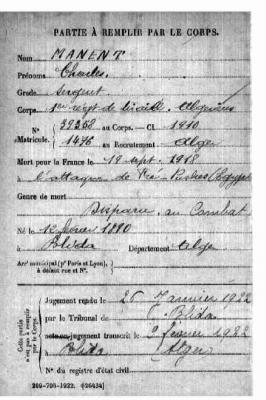 PARTIE À REMPLIR PAR LE CORPS.
Nom MANENT
Prénoms Charles
Grade Sergent
Corps 1er régt de tiraill. Algériens
N° 39368 au Corps. — Cl. 1910
Matricule. 1476 au Recrutement Alger
Mort pour la France le 19 sept. 1918
à l'attaque de
Genre de mort
Disparu au Combat
Né le février 1890
à Blida Département Alger
Arr' municipal (pr Paris et Lyon),
à défaut rue et N°.
Cette partie n'est pas à remplir par le Corps.
Jugement rendu le 26 Janvier 1922
par le Tribunal de Blida
acte ou jugement transcrit le 2 février 1922
à Blida (Alger)
N° du registre d'état civil
209-708-1922. [26434]